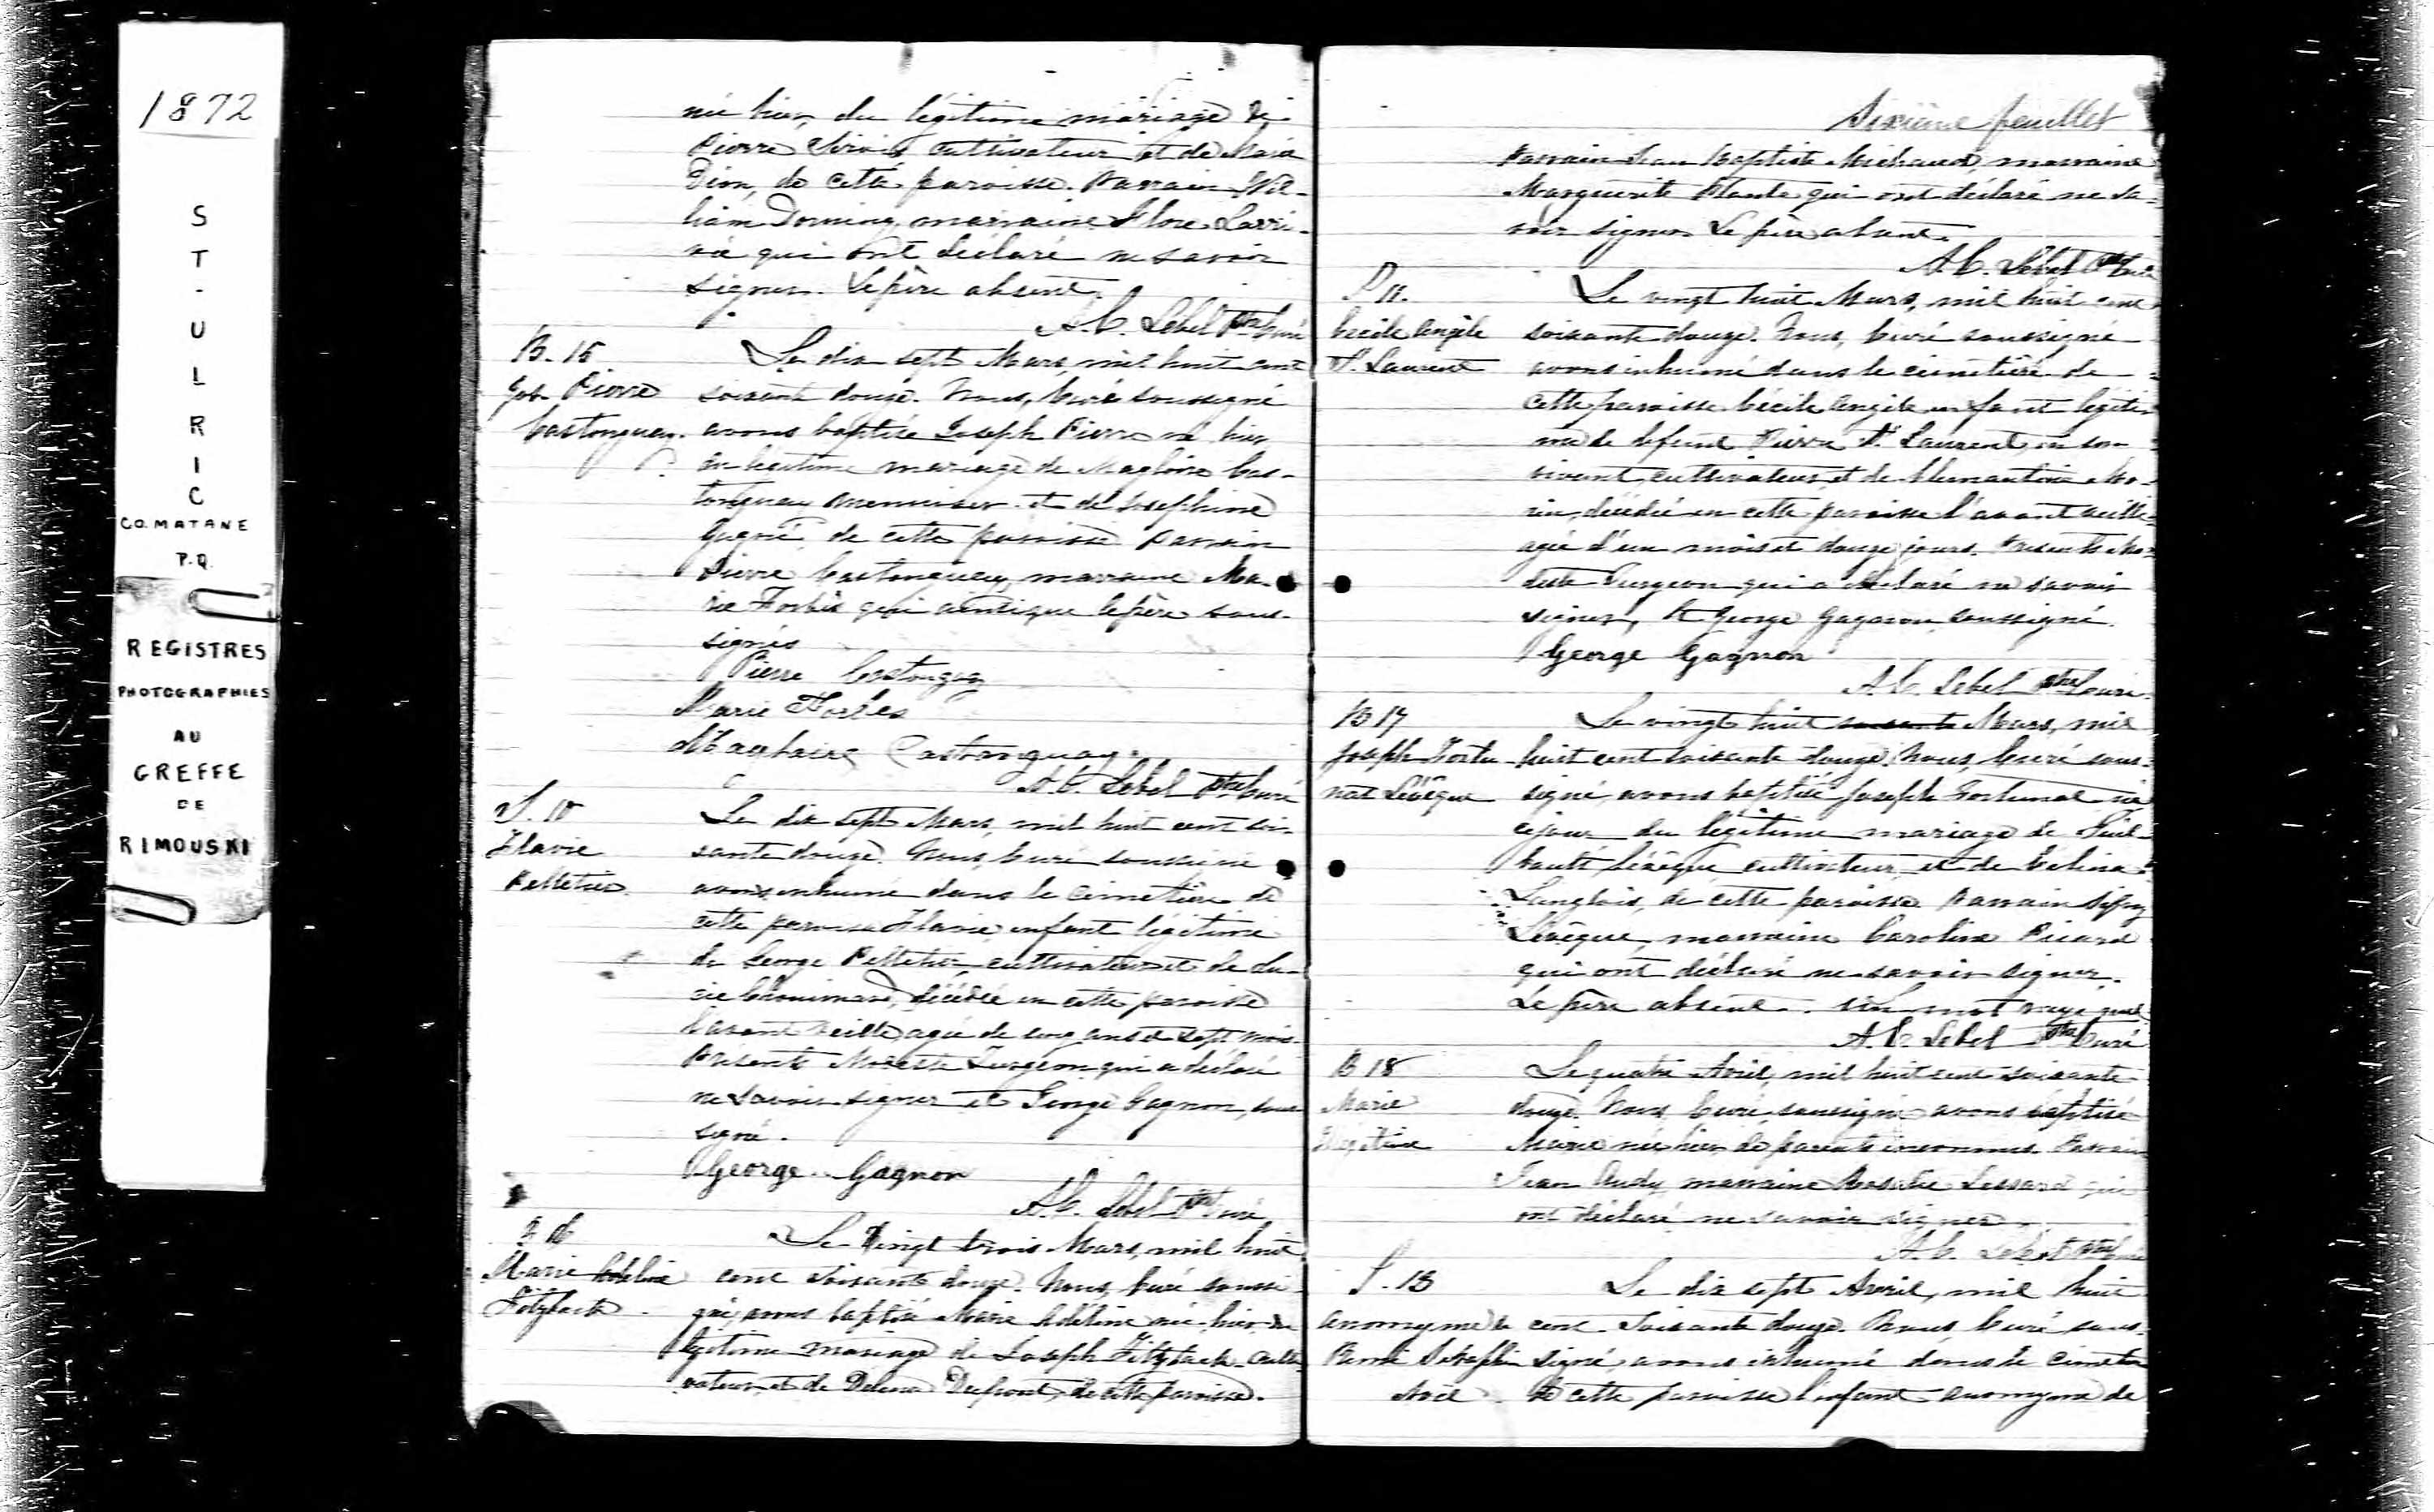 1872
ST-ULRIC
CO. MATANE
P.Q.
REGISTRES
PHOTOGRAPHIES
AU
GREFFE
DE
RIMOUSKI
née hier, du légitime mariage de
Pierre Sirois cultivateur et de
Dion, de cette paroisse. Parrain Wil-
liam marraine Flore Larri-
vée qui ont déclaré ne savoir
signer. Le père absent.
A.C. Lebel Ptre Curé
B. 15
Jos. Pierre
Castonguay.
Le dix sept Mars, mil huit cent
soixante douze. Nous, Curé soussigné
avons baptisé Joseph Pierre né hier
du légitime mariage de Magloire Cas-
tonguay menuisier et de Josephine
Gagné, de cette paroisse Parrain
Pierre Castonguay, marraine Ma-
rie Forbes qui ainsi que le père sous-
signés
Pierre Castonguay
Marie Forbes
Magloire Castonguay
A.C. Lebel Ptre Curé
S. 10
Flavie
Pelletier
Le dix sept Mars, mil huit cent soi-
xante douze. Nous, Curé soussigné
avons inhumé dans le cimetière de
cette paroisse Flavie, enfant légitime
de George Pelletier, cultivateur et de Lu-
cie Chouinard, décédée en cette paroisse
l'avant veille, agée de cinq ans et sept mois.
Présents Modeste Turgeon qui a déclaré
ne savoir signer et George Gagnon, sous-
signé.
George Gagnon
A.C. Lebel Ptre Curé
B 16
Marie Adeline
Fitzback
Le Vingt trois Mars, mil huit
cent soixante douze. Nous, Curé soussi-
gné, avons baptisé Marie Adeline née hier du
légitime mariage de Joseph Fitzback culti-
vateur, et de Delena Dupont, de cette paroisse.
Sixième feuillet
Parrain Jean Baptiste Michaud, marraine
Marguerite Plante qui ont déclaré ne sa-
voir signer. Le père absent.
A.C. Lebel Ptre Curé
S 11.
Cécile Angèle
St. Laurent
Le vingt huit Mars, mil huit cent
soixante douze. Nous, Curé soussigné
avons inhumé dans le cimetière de
cette paroisse Cécile Angèle enfant légiti-
me de defunt Pierre St. Laurent, en son
vivant, cultivateur, et de Mo-
rin, décédée en cette paroisse l'avant veille
agée d'un mois et douze jours. Présents Mo-
deste Turgeon qui a déclaré ne savoir
signer, et George Gagnon soussigné.
George Gagnon
A.C. Lebel Ptre Curé
B 17
Joseph Fortu-
nat Lévêque
Le vingt huit Mars, mil
huit cent soixante douze. Nous, Curé sous-
signé, avons baptisé Joseph Fortunat né
ce jour du légitime mariage de
Lévêque, cultivateur, et de
Langlois, de cette paroisse Parrain
Lévêque, marraine Caroline Picard
qui ont déclaré ne savoir signer.
Le père absent. Un mot rayé nul
A.C. Lebel Ptre Curé
B 18
Marie
Illégitime
Le quatre Avril, mil huit cent soixante
douze. Nous Curé, soussigné avons baptisé
Marie née hier de parents inconnus. Parrain
Jean Audy, marraine Rosalie Lessard qui
ont déclaré ne savoir signer.
A.C. Lebel Ptre Curé
S. 13
Anonyme de
Remi Séraphin
Le dix sept Avril, mil huit
cent soixante douze. Nous, Curé sous-
signé, avons inhumé dans le cimetière
de cette paroisse l'enfant anonyme de